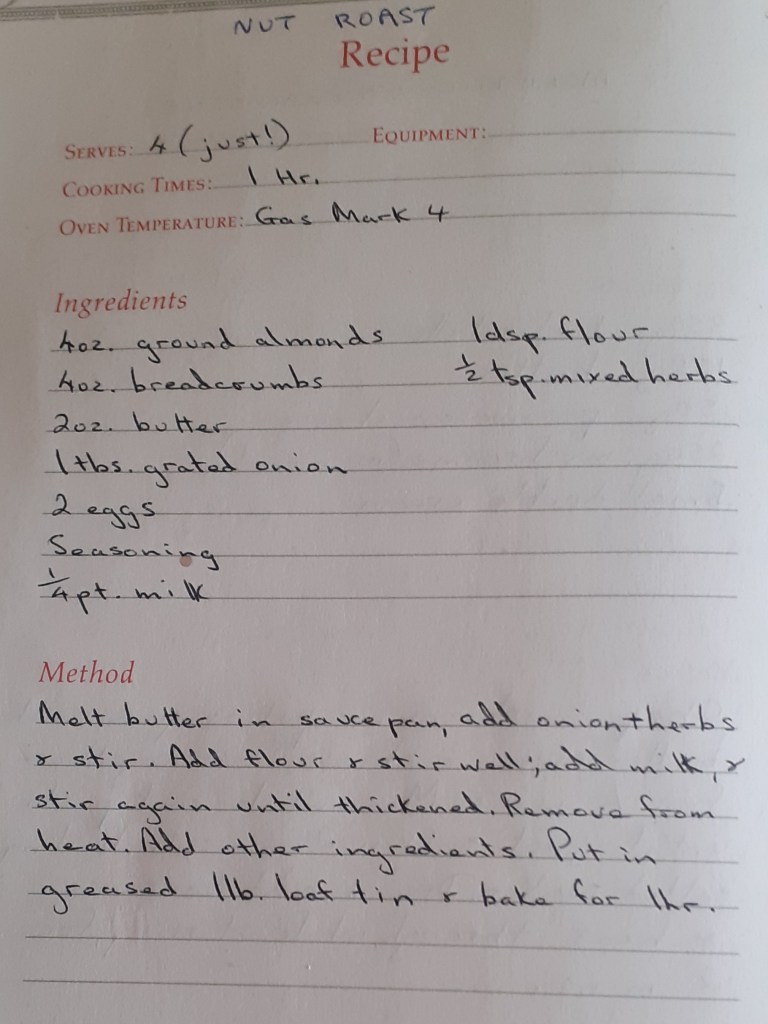 NUT ROAST
Recipe
SERVES: 4 (just!) EQUIPMENT:
COOKING TIMES: 1 Hr.
OVEN TEMPERATURE: Gas Mark 4
Ingredients
4oz. ground almonds 1dsp. flour
4oz. breadcrumbs ½ tsp. mixed herbs
2oz. butter
1tbs. grated onion
2 eggs
Seasoning
¼pt. milk
Method
Melt butter in saucepan, add onion+herbs
& stir. Add flour & stir well; add milk, &
stir again until thickened. Remove from
heat. Add other ingredients. Put in
greased 1lb. loaf tin & bake for 1hr.